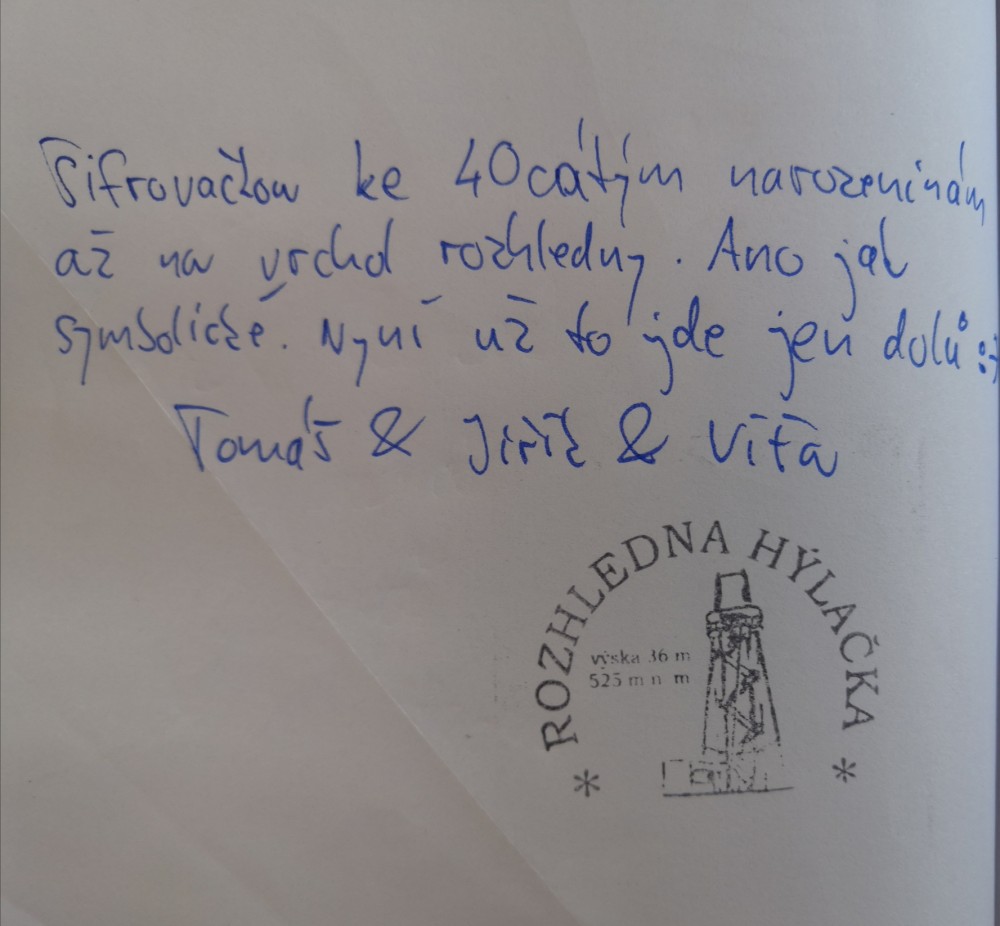 Šifrovačkou ke 40cátým narozeninám
až na vrchol rozhledny. Ano jak
symbolické. Nyní už to jde jen dolů :)
Tomáš & Jiřík & Víťa
ROZHLEDNA HÝLAČKA
výska 36 m
525 m n m